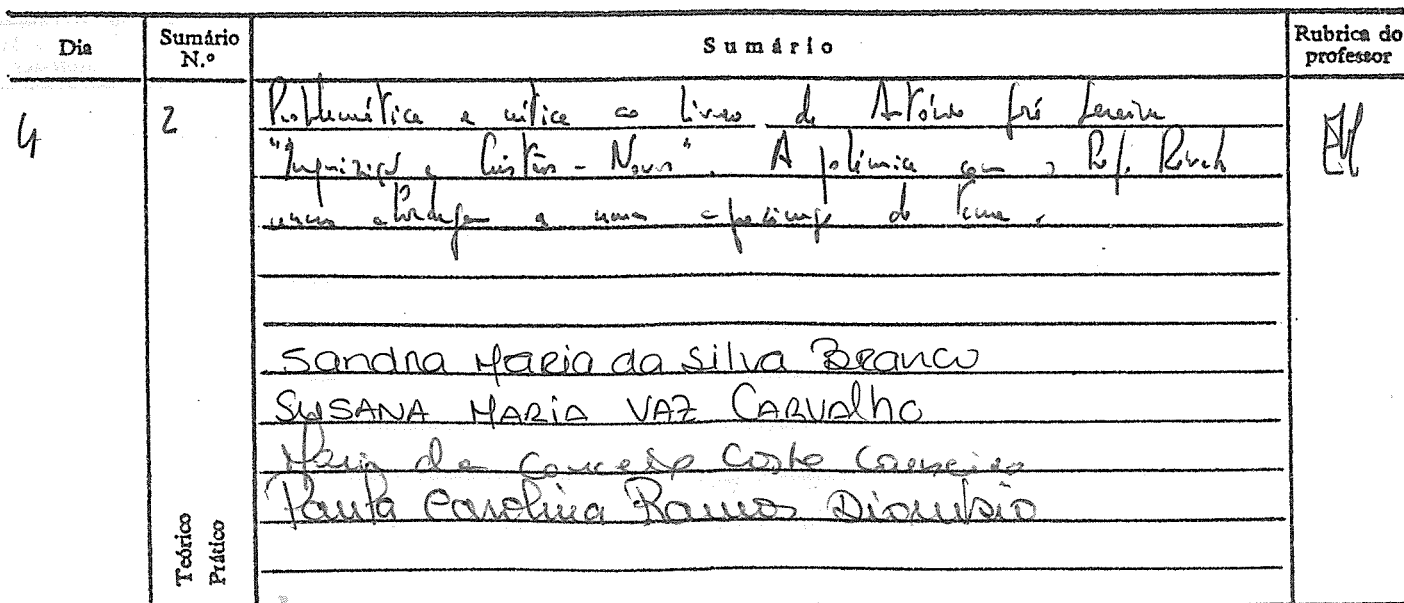 Dia
Sumário N.º
Sumário
Rubrica do professor
4
2
Problemática e crítica ao livro de António José Saraiva
"Inquisição e Cristãos-Novos". A polémica com o Prof. Révah
uma abordagem e uma do tema.
Sandra Maria da Silva Branco
SUSANA MARIA VAZ CARVALHO
Maria da Conceição Costo
Paula Carolina Ramos Dionísio
Teórico
Prático